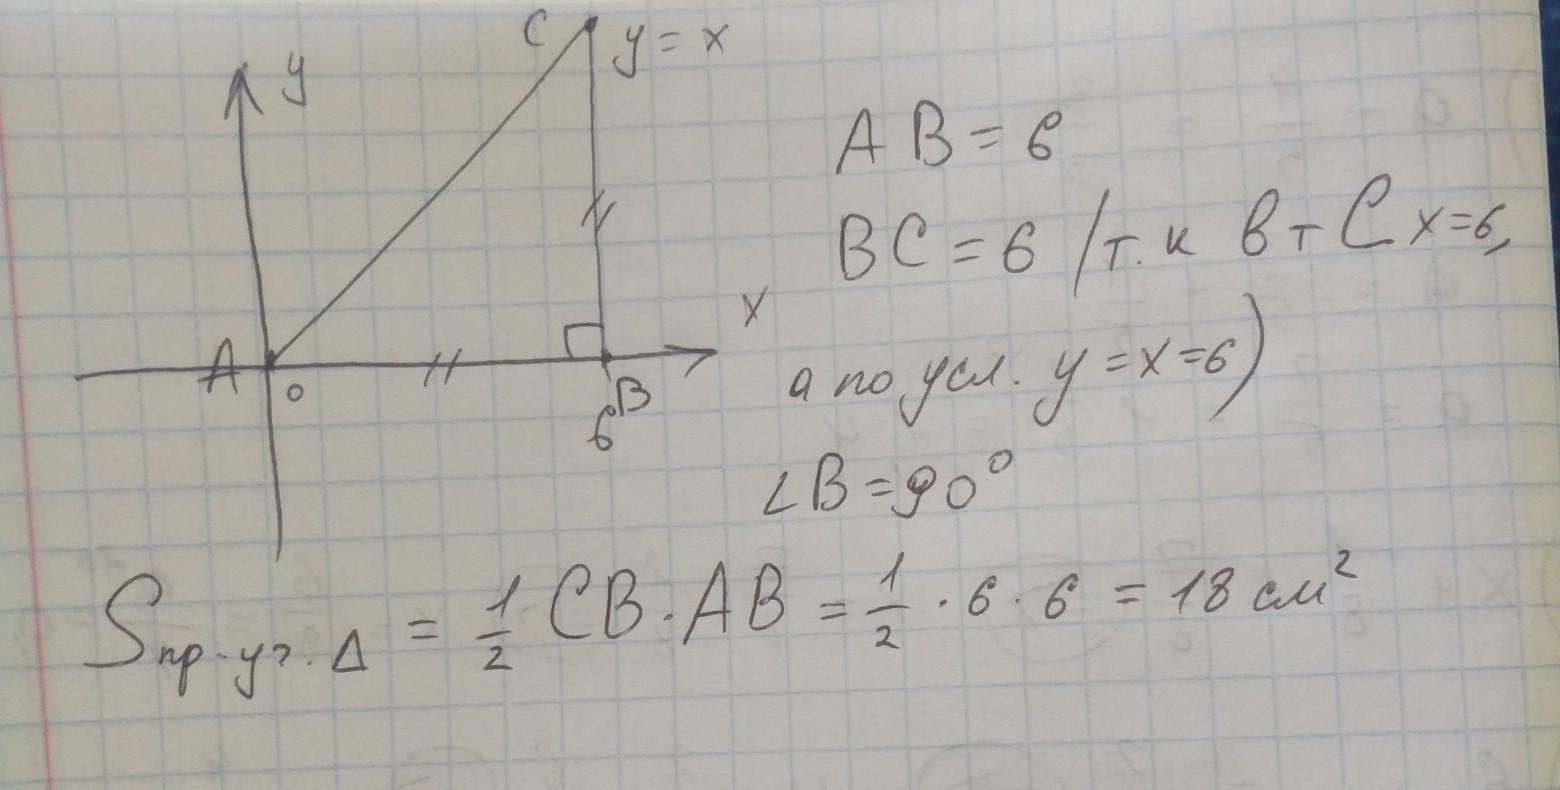 C
y = x
y
AB = 6
BC = 6 (т.к в т C x=6,
x
а по усл. y = x = 6)
A
0
B
6
∠B = 90°
Sпр-уг. Δ = 1/2 CB · AB = 1/2 · 6 · 6 = 18 см²